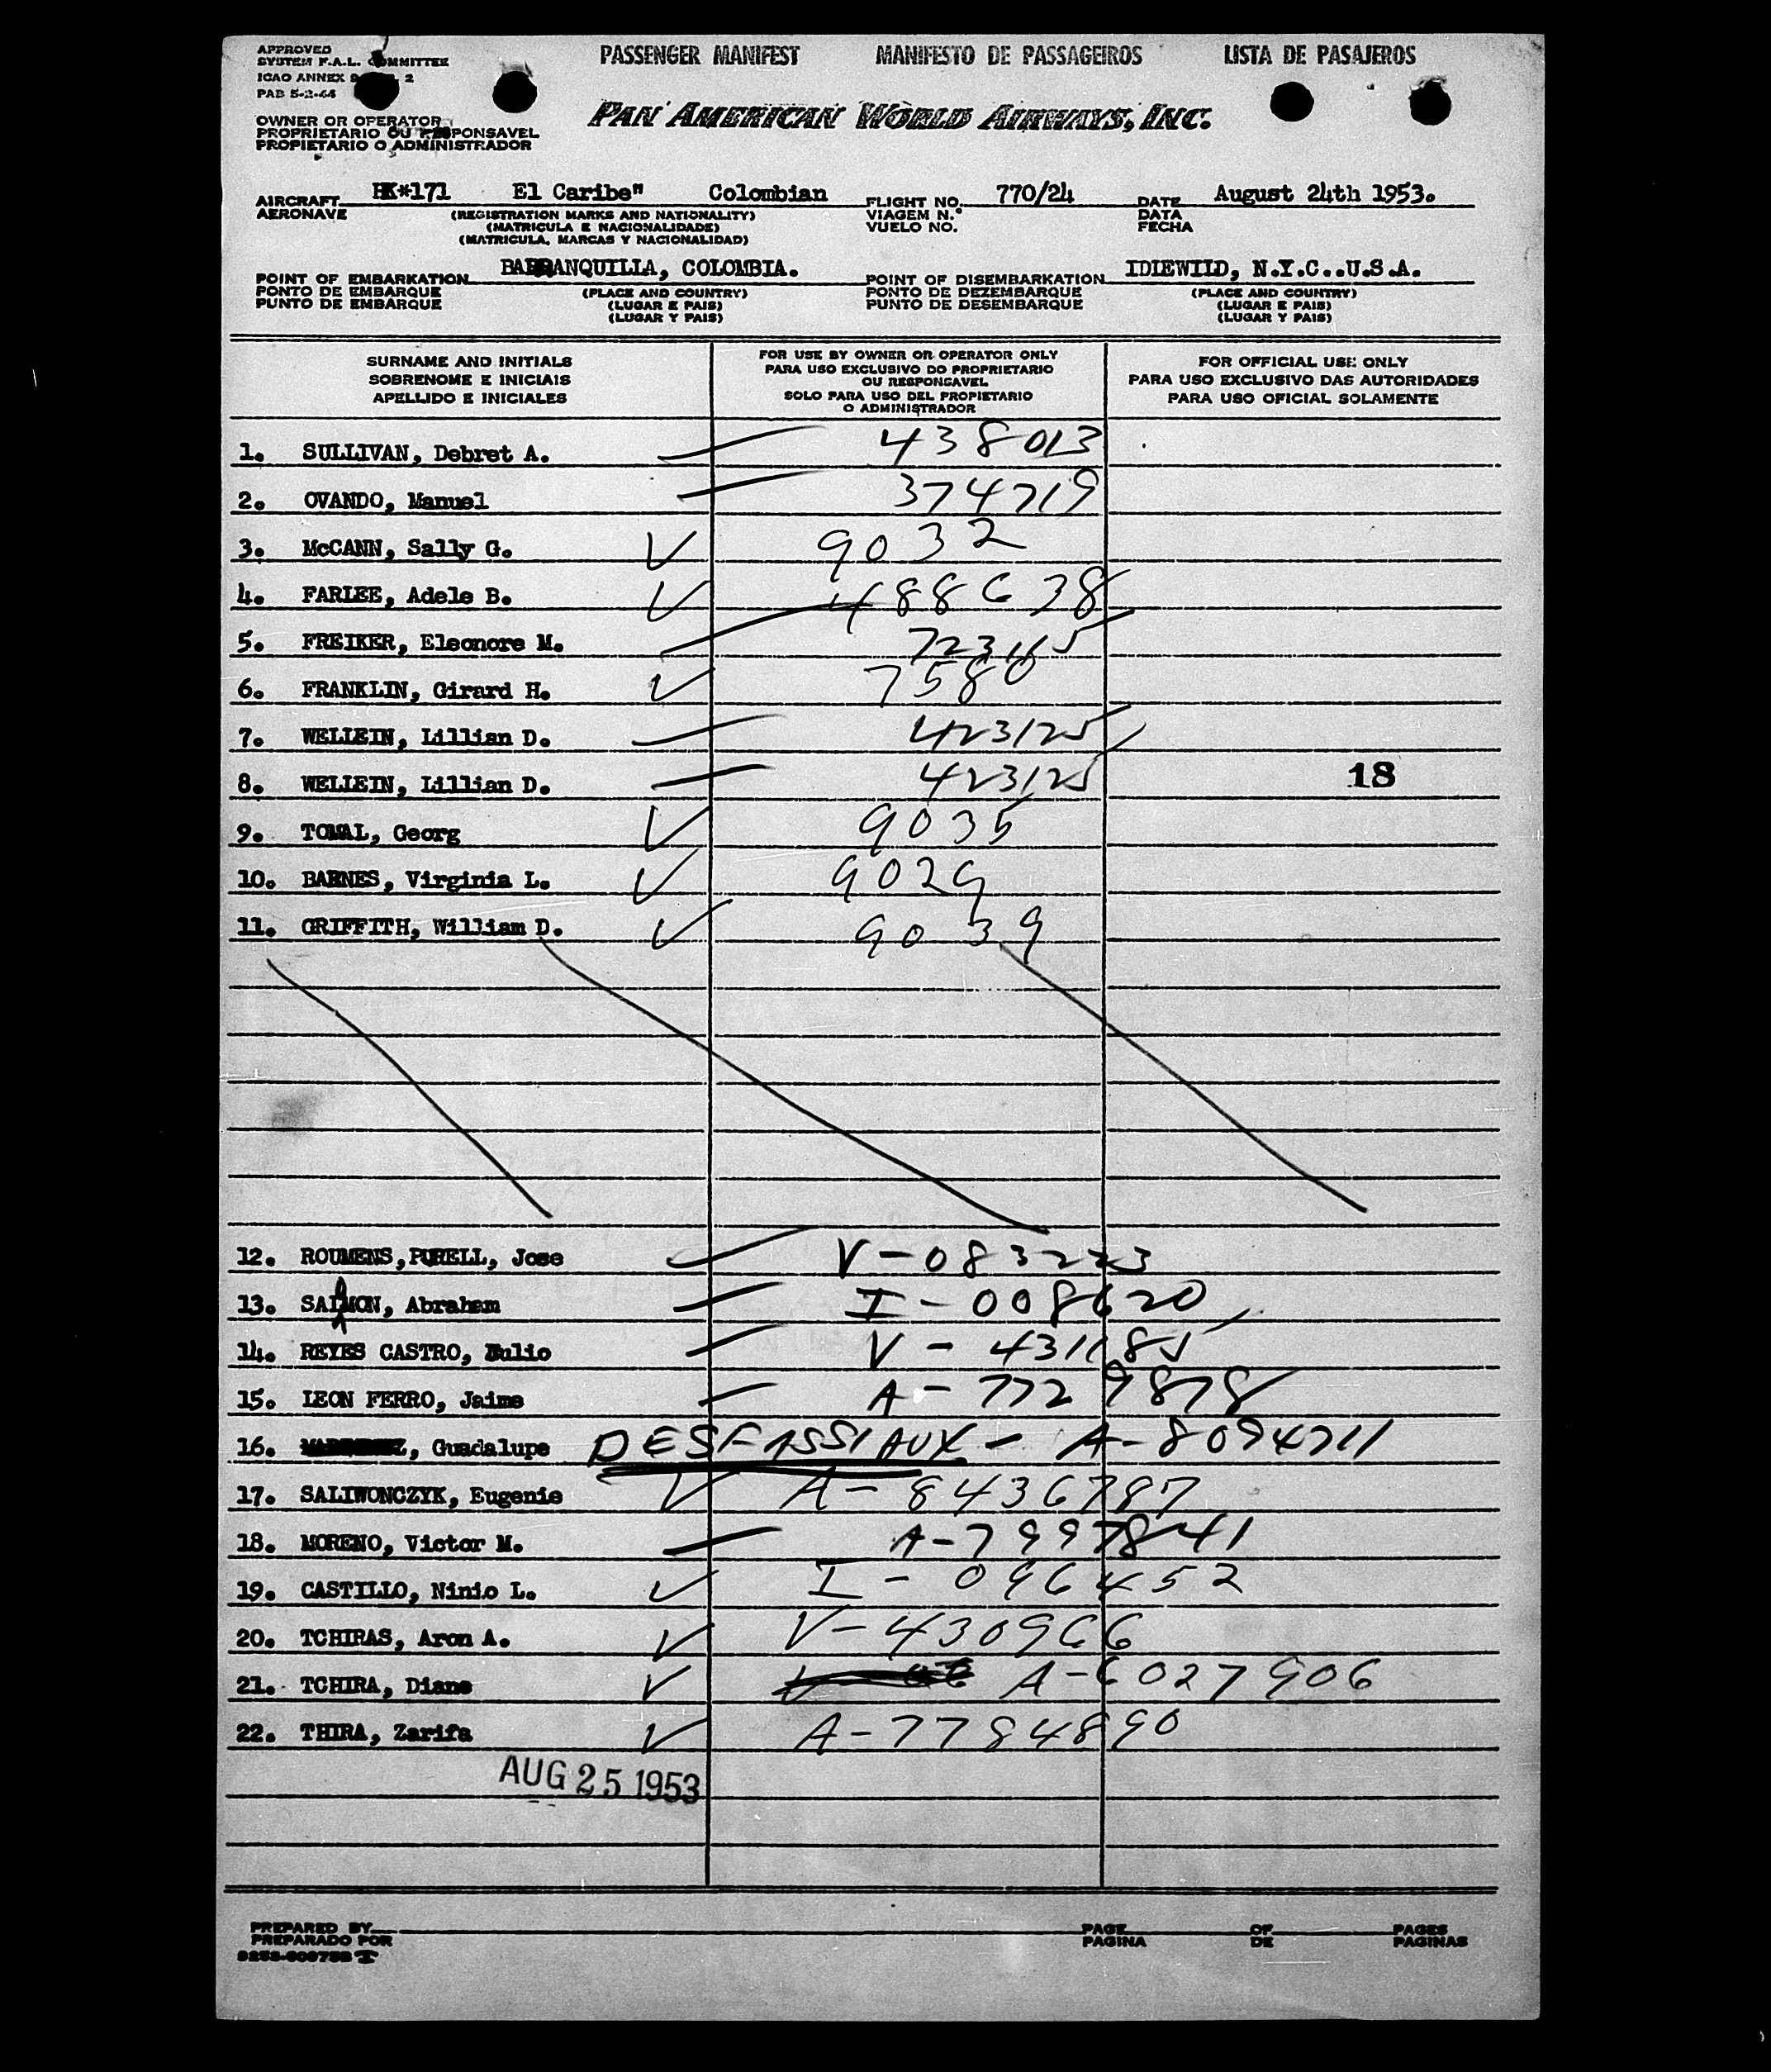 APPROVED
SYSTEM F.A.L. COMMITTEE
ICAO ANNEX 9 2
PAB 5-2-44
PASSENGER MANIFEST MANIFESTO DE PASSAGEIROS LISTA DE PASAJEROS
PAN AMERICAN WORLD AIRWAYS, INC.
OWNER OR OPERATOR
PROPRIETARIO OU RESPONSAVEL
PROPIETARIO O ADMINISTRADOR
AIRCRAFT HK*171 El Caribe" Colombian FLIGHT NO. 770/24 DATE August 24th 1953.
AERONAVE (REGISTRATION MARKS AND NATIONALITY) VIAGEM N.° DATA
(MATRICULA E NACIONALIDADE) VUELO NO. FECHA
(MATRICULA, MARCAS Y NACIONALIDAD)
POINT OF EMBARKATION BARRANQUILLA, COLOMBIA. POINT OF DISEMBARKATION IDIEWILD, N.Y.C..U.S.A.
PONTO DE EMBARQUE (PLACE AND COUNTRY) PONTO DE DEZEMBARQUE (PLACE AND COUNTRY)
PUNTO DE EMBARQUE (LUGAR E PAIS) PUNTO DE DESEMBARQUE (LUGAR E PAIS)
(LUGAR Y PAIS) (LUGAR Y PAIS)
SURNAME AND INITIALS
SOBRENOME E INICIAIS
APELLIDO E INICIALES
FOR USE BY OWNER OR OPERATOR ONLY
PARA USO EXCLUSIVO DO PROPRIETARIO
OU RESPONSAVEL
SOLO PARA USO DEL PROPIETARIO
O ADMINISTRADOR
FOR OFFICIAL USE ONLY
PARA USO EXCLUSIVO DAS AUTORIDADES
PARA USO OFICIAL SOLAMENTE
1. SULLIVAN, Debret A. 438013
2. OVANDO, Manuel 374719
3. McCANN, Sally G. 9032
4. FARLEE, Adele B. 488638
5. FREIKER, Eleonore M. 723115
6. FRANKLIN, Girard H. 7580
7. WELLEIN, Lillian D. 423125
8. WELLEIN, Lillian D. 423125 18
9. TOMAL, Georg 9035
10. BARNES, Virginia L. 9029
11. GRIFFITH, William D. 9039
12. ROUMENS, PURELL, Jose V-083223
13. SALMON, Abraham I-008620
14. REYES CASTRO, Julio V-431185
15. LEON FERRO, Jaime A-7729878
16. , Guadalupe DESFASSIAUX - A-8094711
17. SALIWONCZYK, Eugenie A-8436787
18. MORENO, Victor M. A-7997841
19. CASTILLO, Ninio L. I-096452
20. TCHIRAS, Aron A. V-430966
21. TCHIRA, Diane A-6027906
22. THIRA, Zarifa A-7784890
AUG 25 1953
PREPARED BY PAGE OF PAGES
PREPARADO POR PAGINA DE PAGINAS